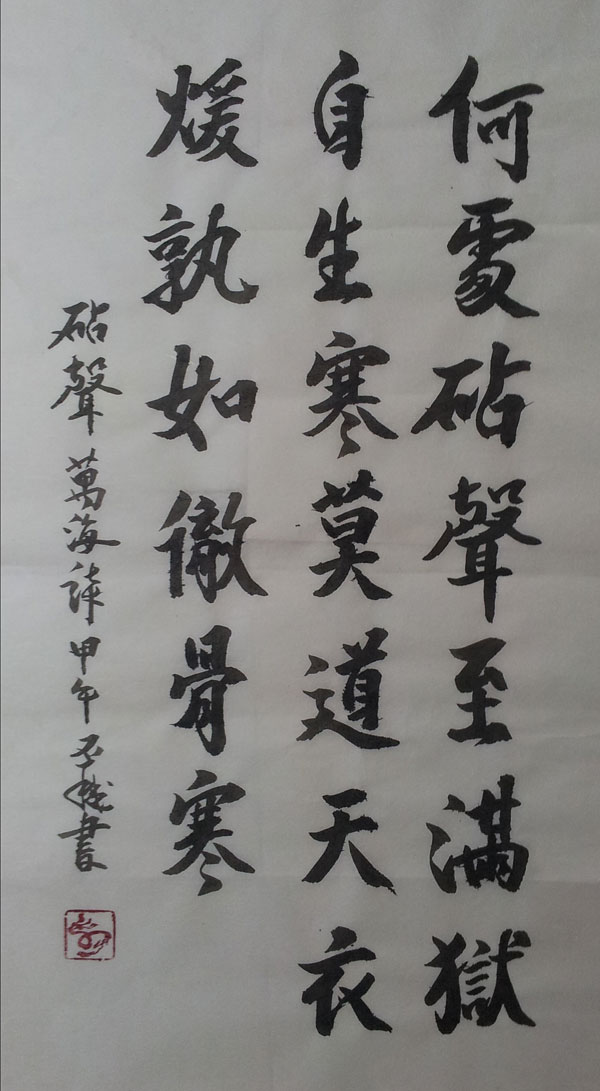 何處砧聲至滿獄
自生寒莫道天衣
煖孰如徹骨寒
砧聲 萬海詩 甲午 書